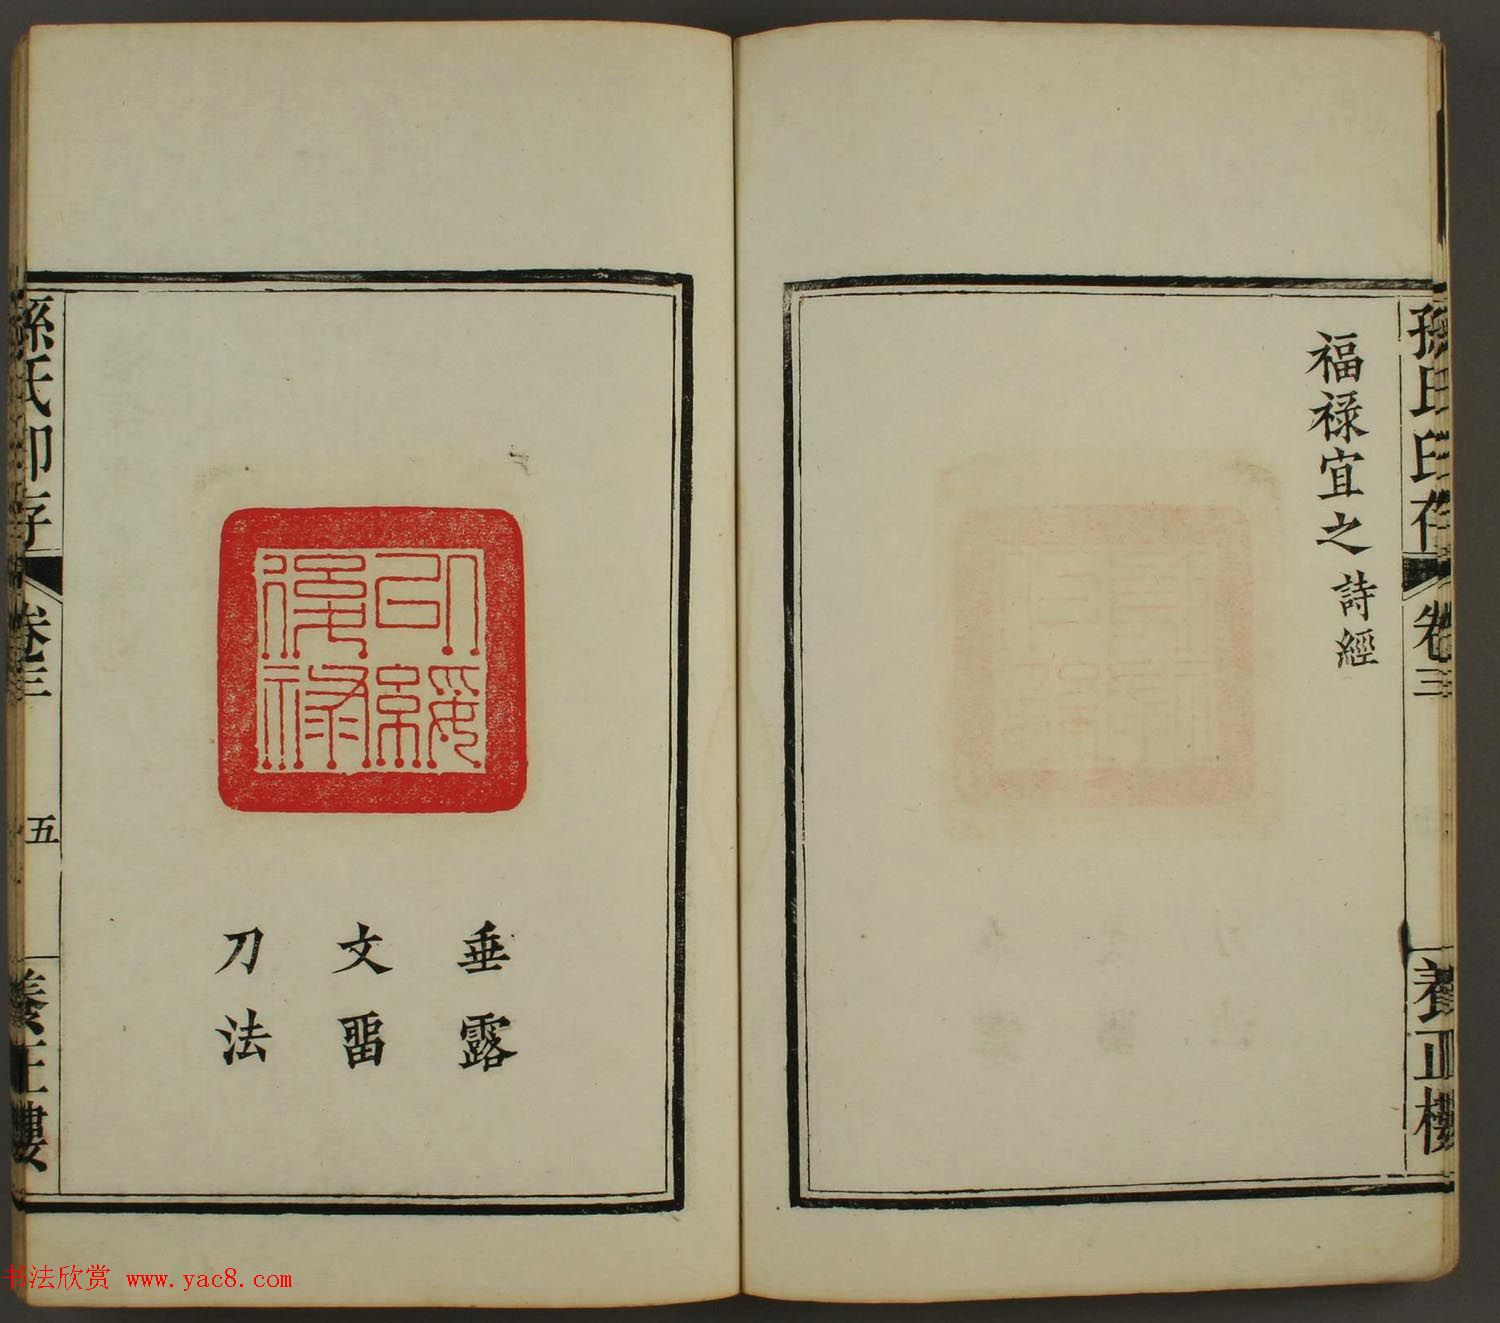 孫氏印存
卷三
養正樓
福祿宜之 詩經
以綏後祿
垂露
文畱
刀法
孫氏印存
卷三
五
養正樓
书法欣赏 www.yac8.com